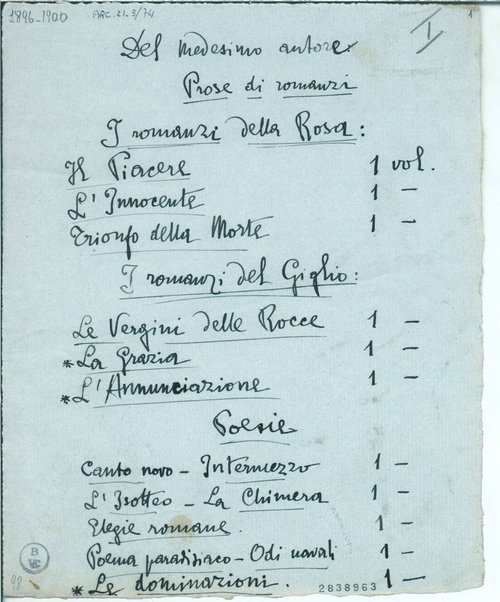 1896-1900 ARC.21.5/74 I
Del medesimo autore:
Prose di romanzi
I romanzi della Rosa:
Il Piacere 1 vol.
L'Innocente 1 —
Trionfo della Morte 1 —
I romanzi del Giglio:
Le Vergini delle Rocce 1 —
* La Grazia 1 —
* L'Annunciazione 1 —
Poesie
Canto novo - Intermezzo 1 —
L'Isotteo - La Chimera 1 —
Elegie romane. 1 —
Poema paradisiaco - Odi navali 1 —
* Le dominazioni. 1 —
98 2838963